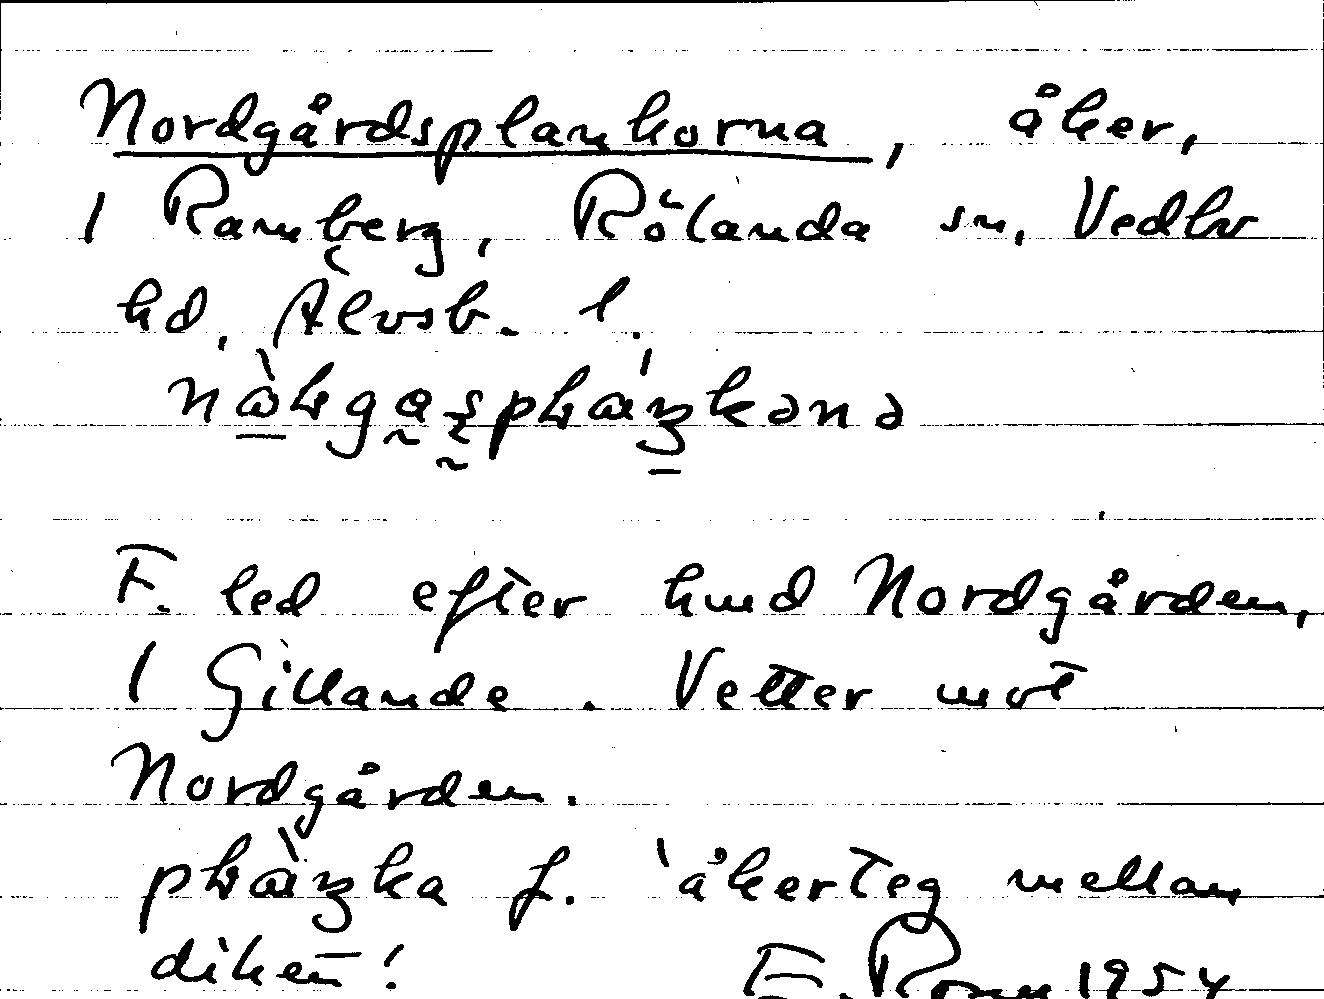 Nordgårdsplankorna, åker,
i Ramberg, Rölanda sn, Vedbo
hd, Älvsb. l.
F. led efter hmd Nordgården,
i Gillande. Vetter mot
Nordgården.
f. 'åkerteg mellan
diken'
E. 1954